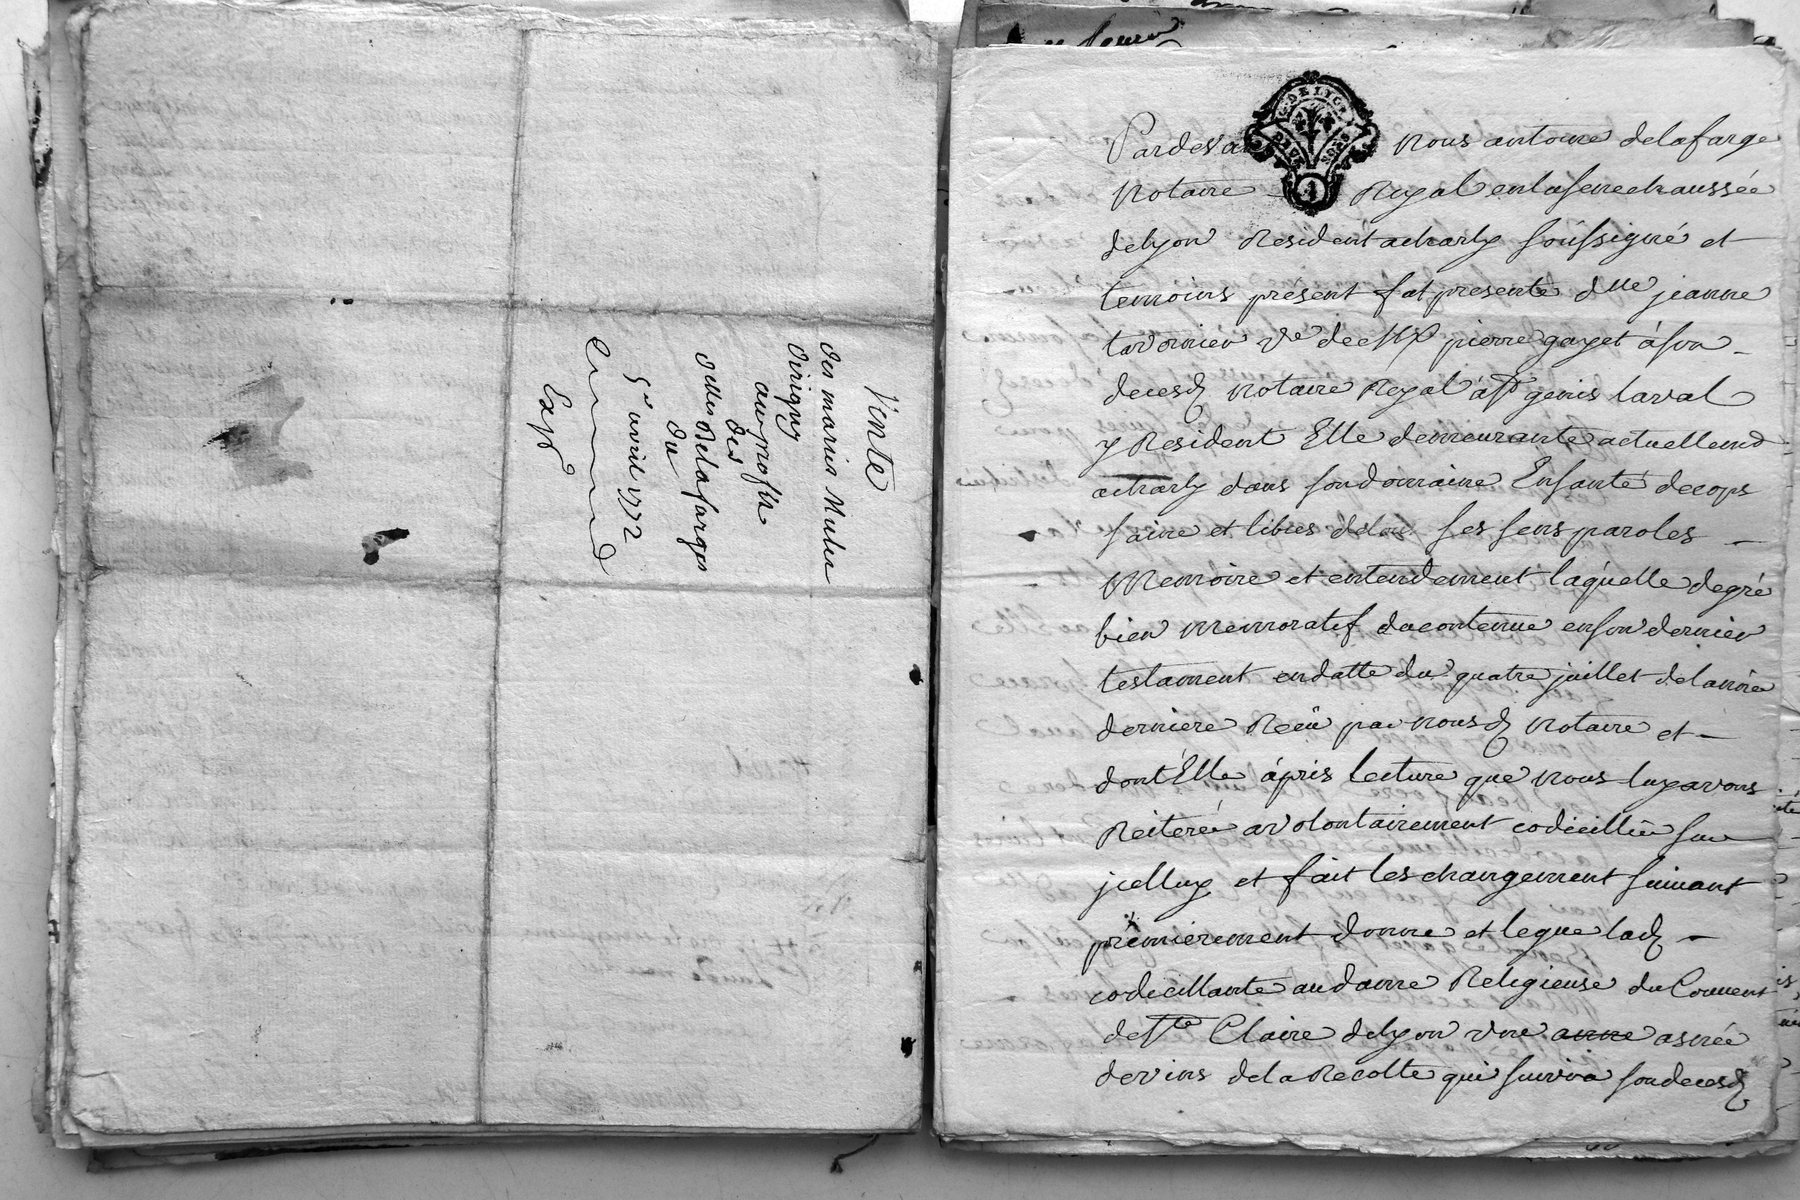 Vente
des mariés Muler
d'irigny
au profit
des
dlles Delafarges
du
5e avril 1772
Expd
GDELION
DEUX SOLS
1
Pardeva nous antoine delafarge
Notaire Royal enlasenechaussée
delyon Resident acharly soussigné et
temoins present fut presente dlle jeanne
tavernier ve de Me pierre gayet àson
decesd notaire Royal àst genis laval
y Resident Elle demeurante actuellemt
acharly dans sondomaine Ensanté decops
saine et libres detous ses sens paroles
Memoire et entendement laquelle degré
bien memoratif ducontenue enson dernier
testament endatte du quatre juillet delannée
derniere Reçû par nousd notaire et
dont Elle áprés lecture que nous luyavons
Reiterée avolontairement codicillée sur
jcelluy et fait les changement suivant
premierement donne et legue lad
codicillante audame Religieuse du Couvent
deste Claire delyon une anne asnée
devins dela Recolte qui suivra sondecesd